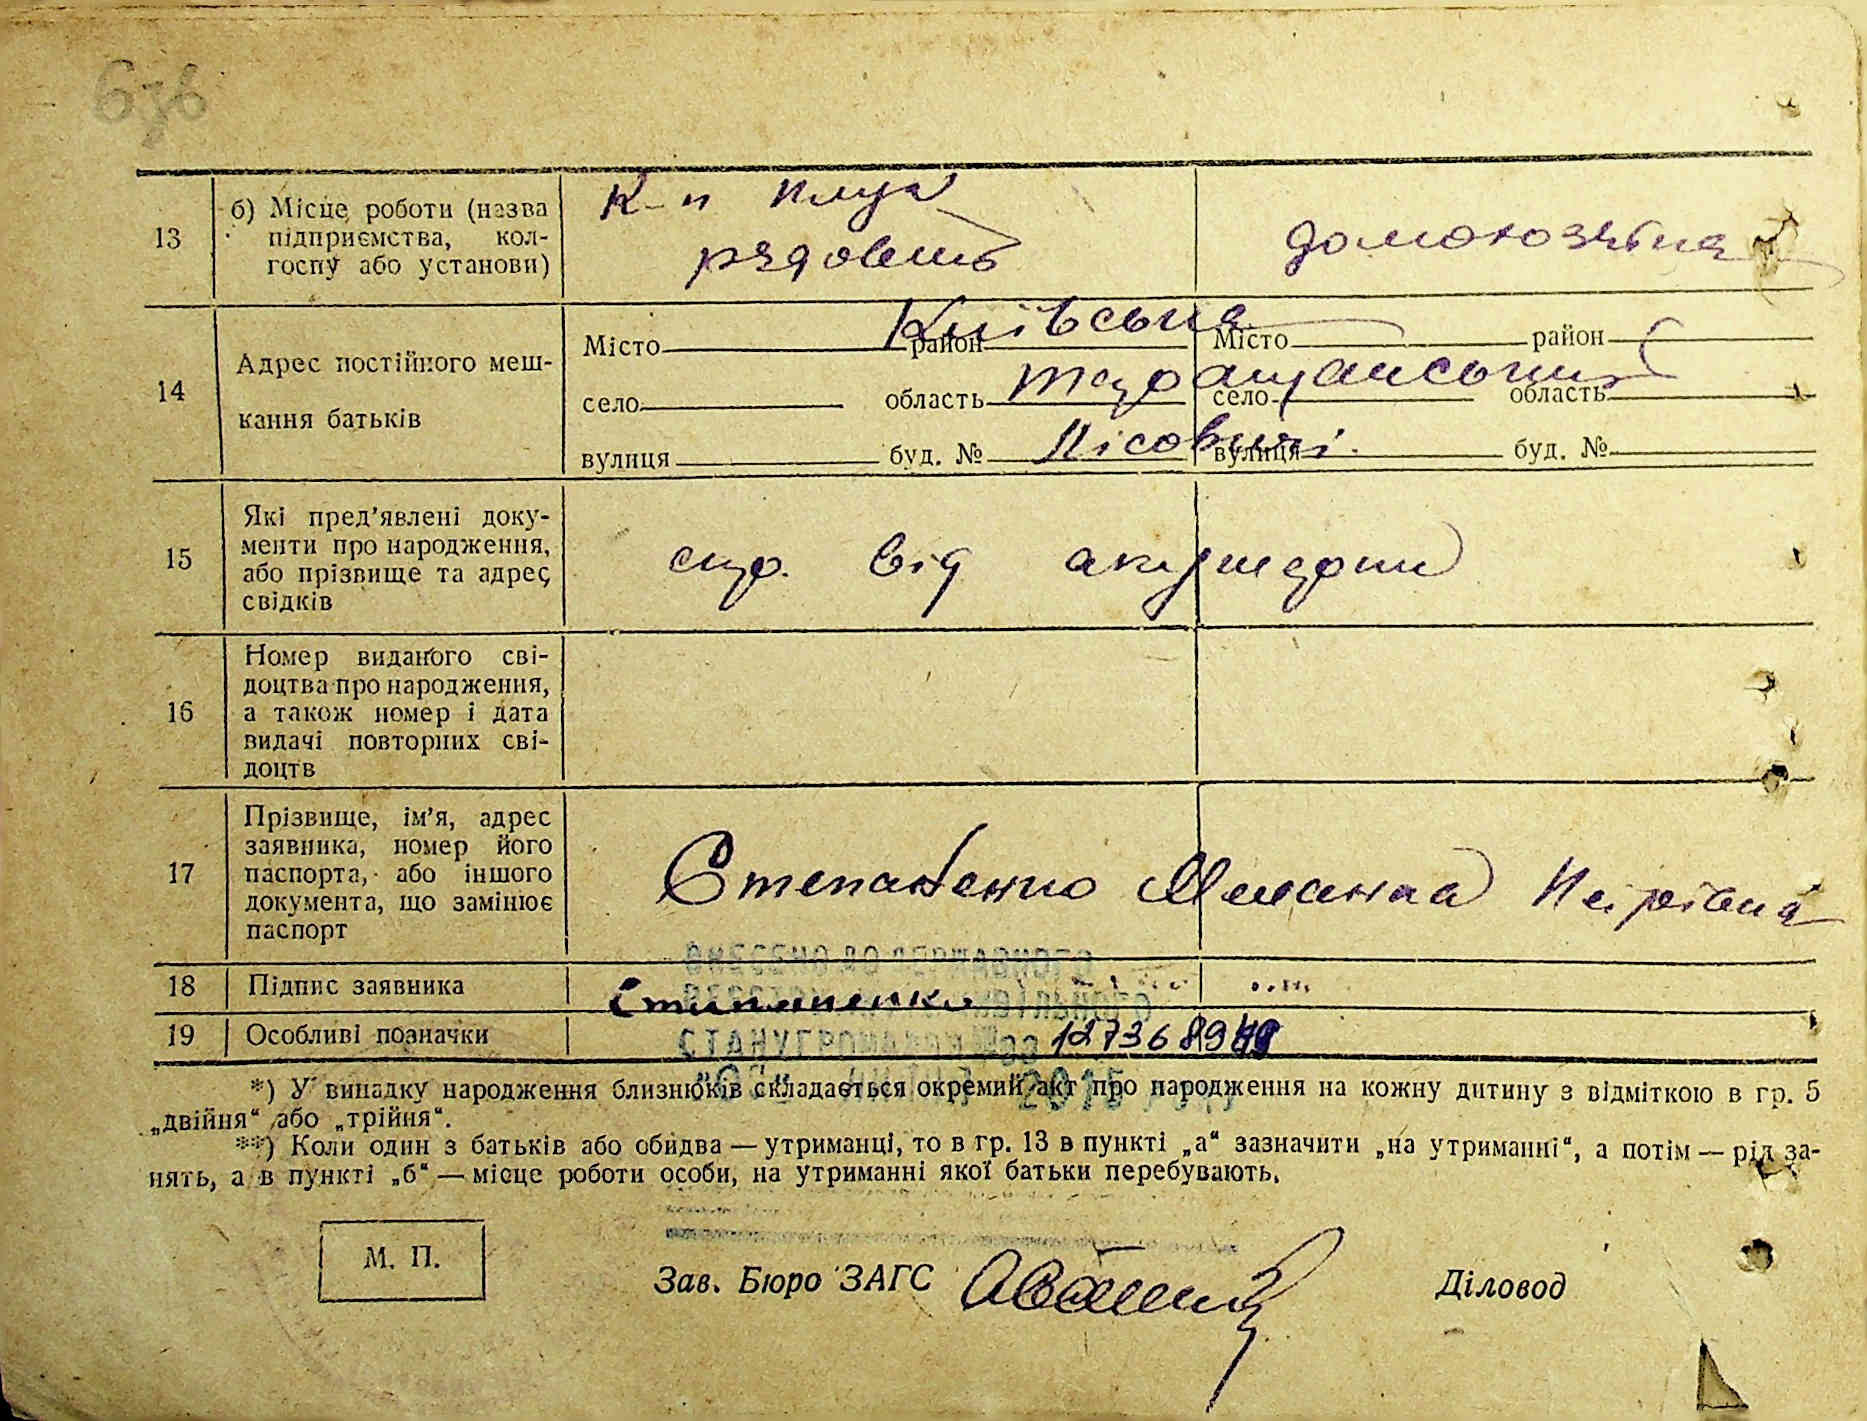 13
б) Місце роботи (назва
підприємства, кол-
госпу або установи)
К-п плуг
рядовий
домогозяйка
14
Адрес постійного меш-
кання батьків
Місто район
село область
вулиця буд. №
Місто район
село область
вулиця буд. №
Київська
Таращанський
Лісовичі.
15
Які пред'явлені доку-
менти про народження,
або прізвище та адрес
свідків
від акушерки
16
Номер виданого сві-
доцтва про народження,
а також номер і дата
видачі повторних сві-
доцтв
17
Прізвище, ім'я, адрес
заявника, номер його
паспорта, або іншого
документа, що замінює
паспорт
Степаненко Меланка Петрівна
18
Підпис заявника
Степаненко
19
Особливі позначки
*) У випадку народження близнюків складається окремий акт про народження на кожну дитину з відміткою в гр. 5
„двійня“ або „трійня“.
**) Коли один з батьків або обидва — утриманці, то в гр. 13 в пункті „а“ зазначити „на утриманні“, а потім — рід за-
нять, а в пункті „б“ — місце роботи особи, на утриманні якої батьки перебувають.
М. П.
Зав. Бюро ЗАГС
Діловод